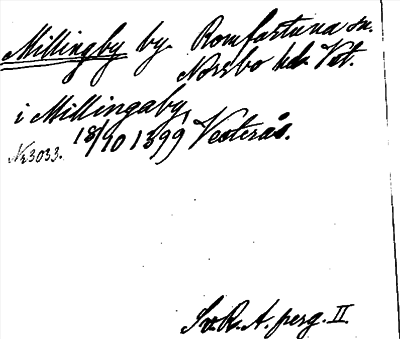 Millingby by. Romfartuna sn.
Norrbo hd. Vstm.
i Millingaby,
18/10 1399 Vesterås.
Nr 3033.
Sv. R. A. perg. II